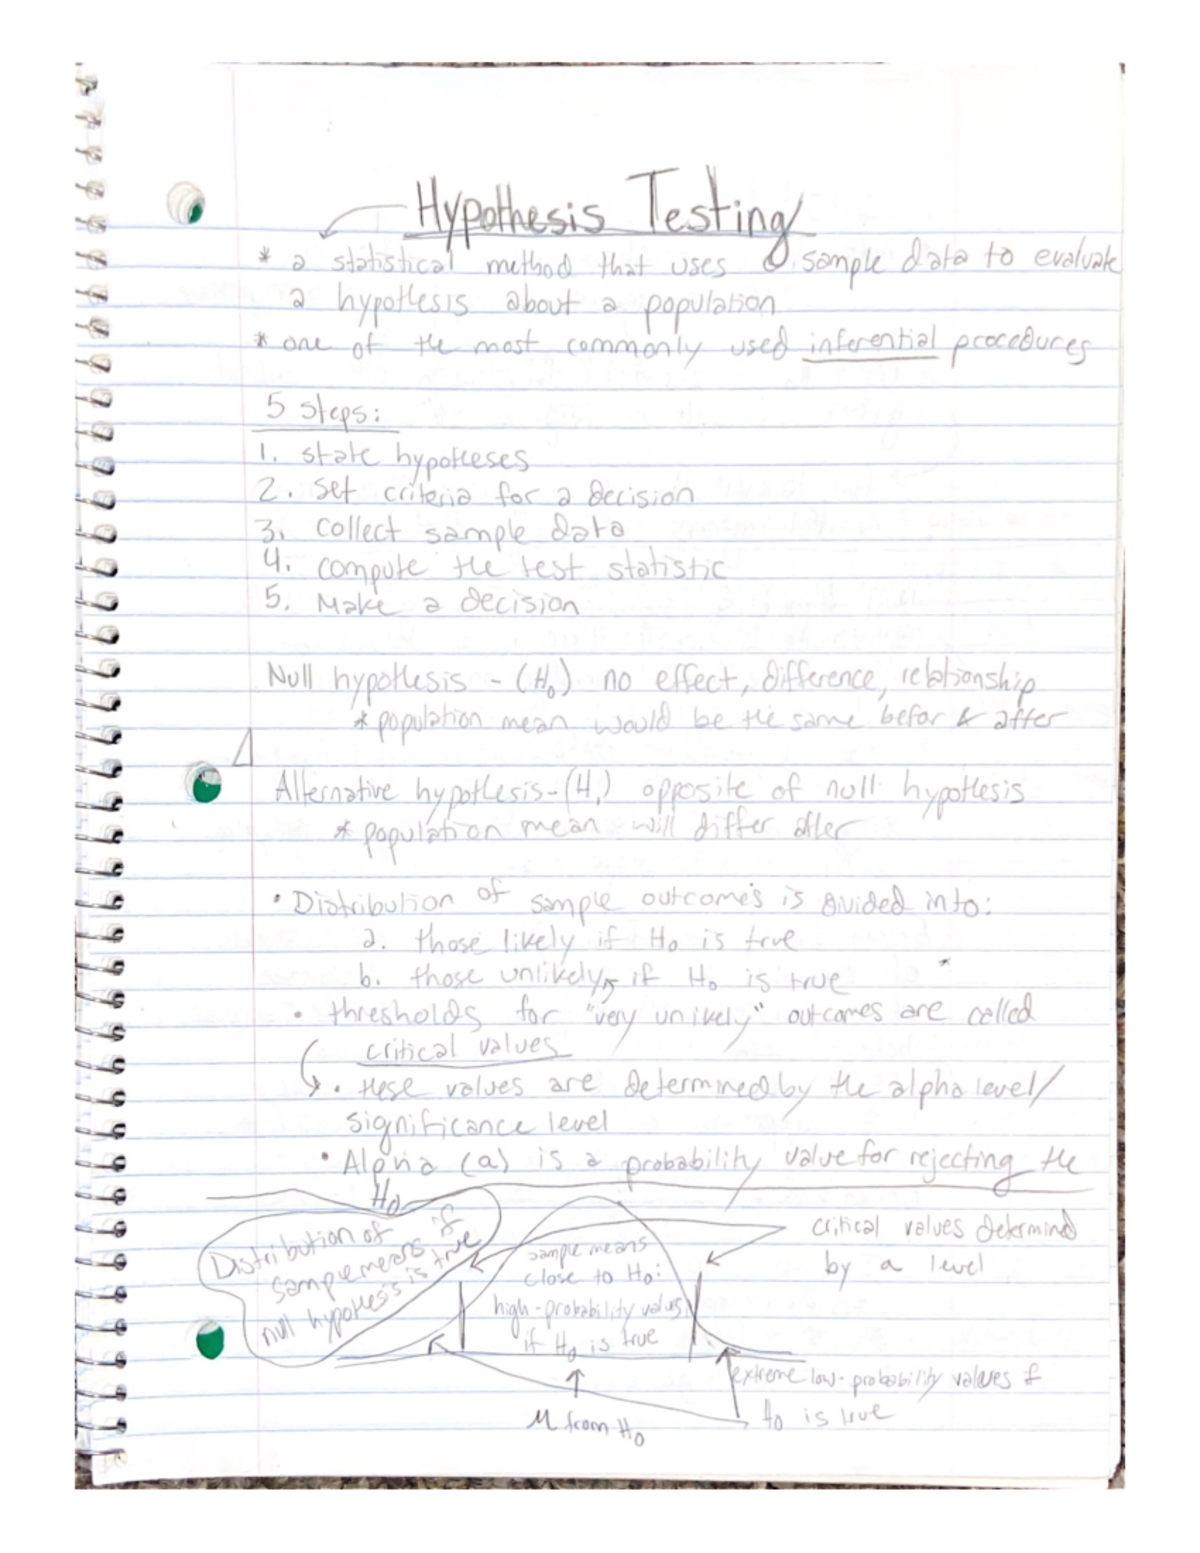 Hypothesis Testing
* a statistical method that uses sample data to evaluate
a hypothesis about a population
* one of the most commonly used inferential procedures
5 steps:
1. state hypotheses
2. set criteria for a decision
3. collect sample data
4. compute the test statistic
5. Make a decision
Null hypothesis - (H₀) no effect, difference, relationship
* population mean would be the same befor & after
Alternative hypothesis - (H₁) opposite of null hypothesis
* population mean will differ after
• Distribution of sample outcomes is divided into:
a. those likely if H₀ is true
b. those unlikely if H₀ is true
• thresholds for "very unlikely" outcomes are called
critical values
• these values are determined by the alpha level/
significance level
• Alpha (a) is a probability value for rejecting the
H₀
Distribution of
sample means if
null hypothesis is true
sample means
close to H₀:
high-probability values
if H₀ is true
critical values determind
by a level
extreme low-probability values if
H₀ is true
μ from H₀